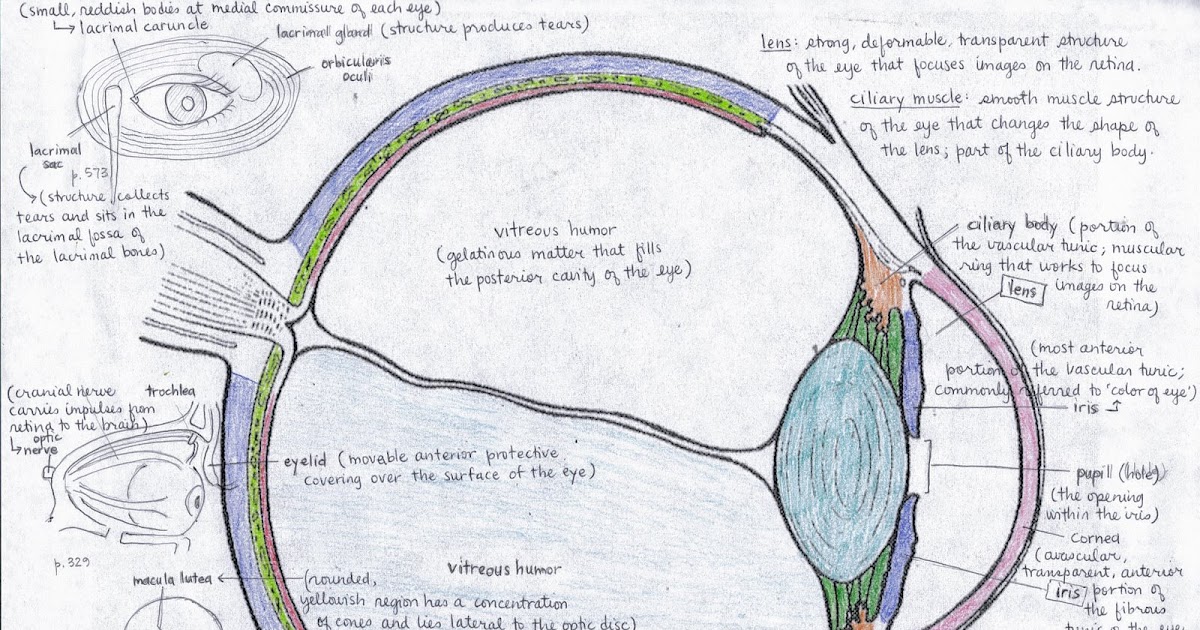 (small, reddish bodies at medial commissure of each eye)
↳ lacrimal caruncle
lacrimal gland (structure produces tears)
orbicularis
oculi
lacrimal
sac
p. 573
(structure collects
tears and sits in the
lacrimal fossa of
the lacrimal bones)
lens: strong, deformable, transparent structure
of the eye that focuses images on the retina.
ciliary muscle: smooth muscle structure
of the eye that changes the shape of
the lens; part of the ciliary body.
vitreous humor
(gelatinous matter that fills
the posterior cavity of the eye)
ciliary body (portion of
the vascular tunic; muscular
ring that works to focus
lens images on the
retina)
(most anterior
portion of the vascular tunic;
commonly referred to 'color of eye')
iris
(cranial nerve
carries impulses from
retina to the brain)
↳ optic
nerve
trochlea
eyelid (movable anterior protective
covering over the surface of the eye)
pupill (hole)
(the opening
within the iris)
cornea
(avascular,
transparent, anterior
iris portion of
the fibrous
tunic of the eye
p. 329
vitreous humor
macula lutea ← (rounded,
yellowish region has a concentration
of cones and lies lateral to the optic disc)